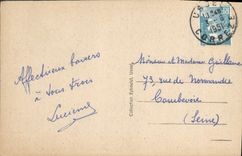 Affectueux baisers
à vous trois
Lucienne
Collection
1951
CORRÈZE
Monsieur et Madame Guillaume
73 rue de Normandie
Courbevoie
(Seine)